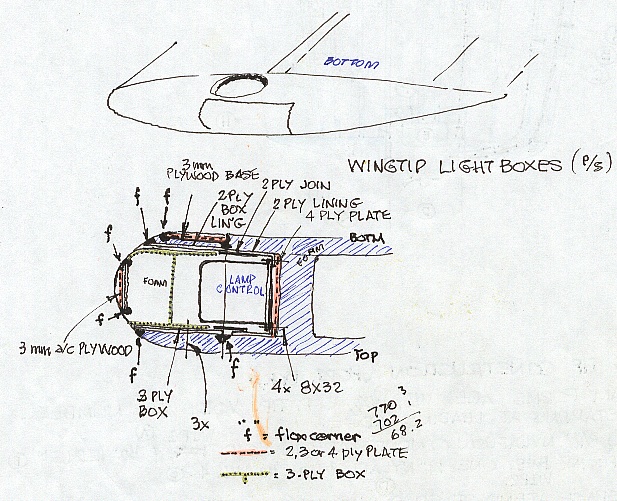 BOTTOM
WINGTIP LIGHT BOXES (P/S)
3 mm
PLYWOOD BASE
2 PLY
BOX
LIN'G
2 PLY JOIN
2 PLY LINING
4 PLY PLATE
f
f
f
BOTM
FOAM
FOAM
LAMP
CONTROL
f
3 mm a/c PLYWOOD
TOP
f
f
3 PLY
BOX
3x
4x 8X32
770
3
702
68.2
"f" = flox corner
= 2,3 or 4 ply PLATE
= 3-PLY BOX